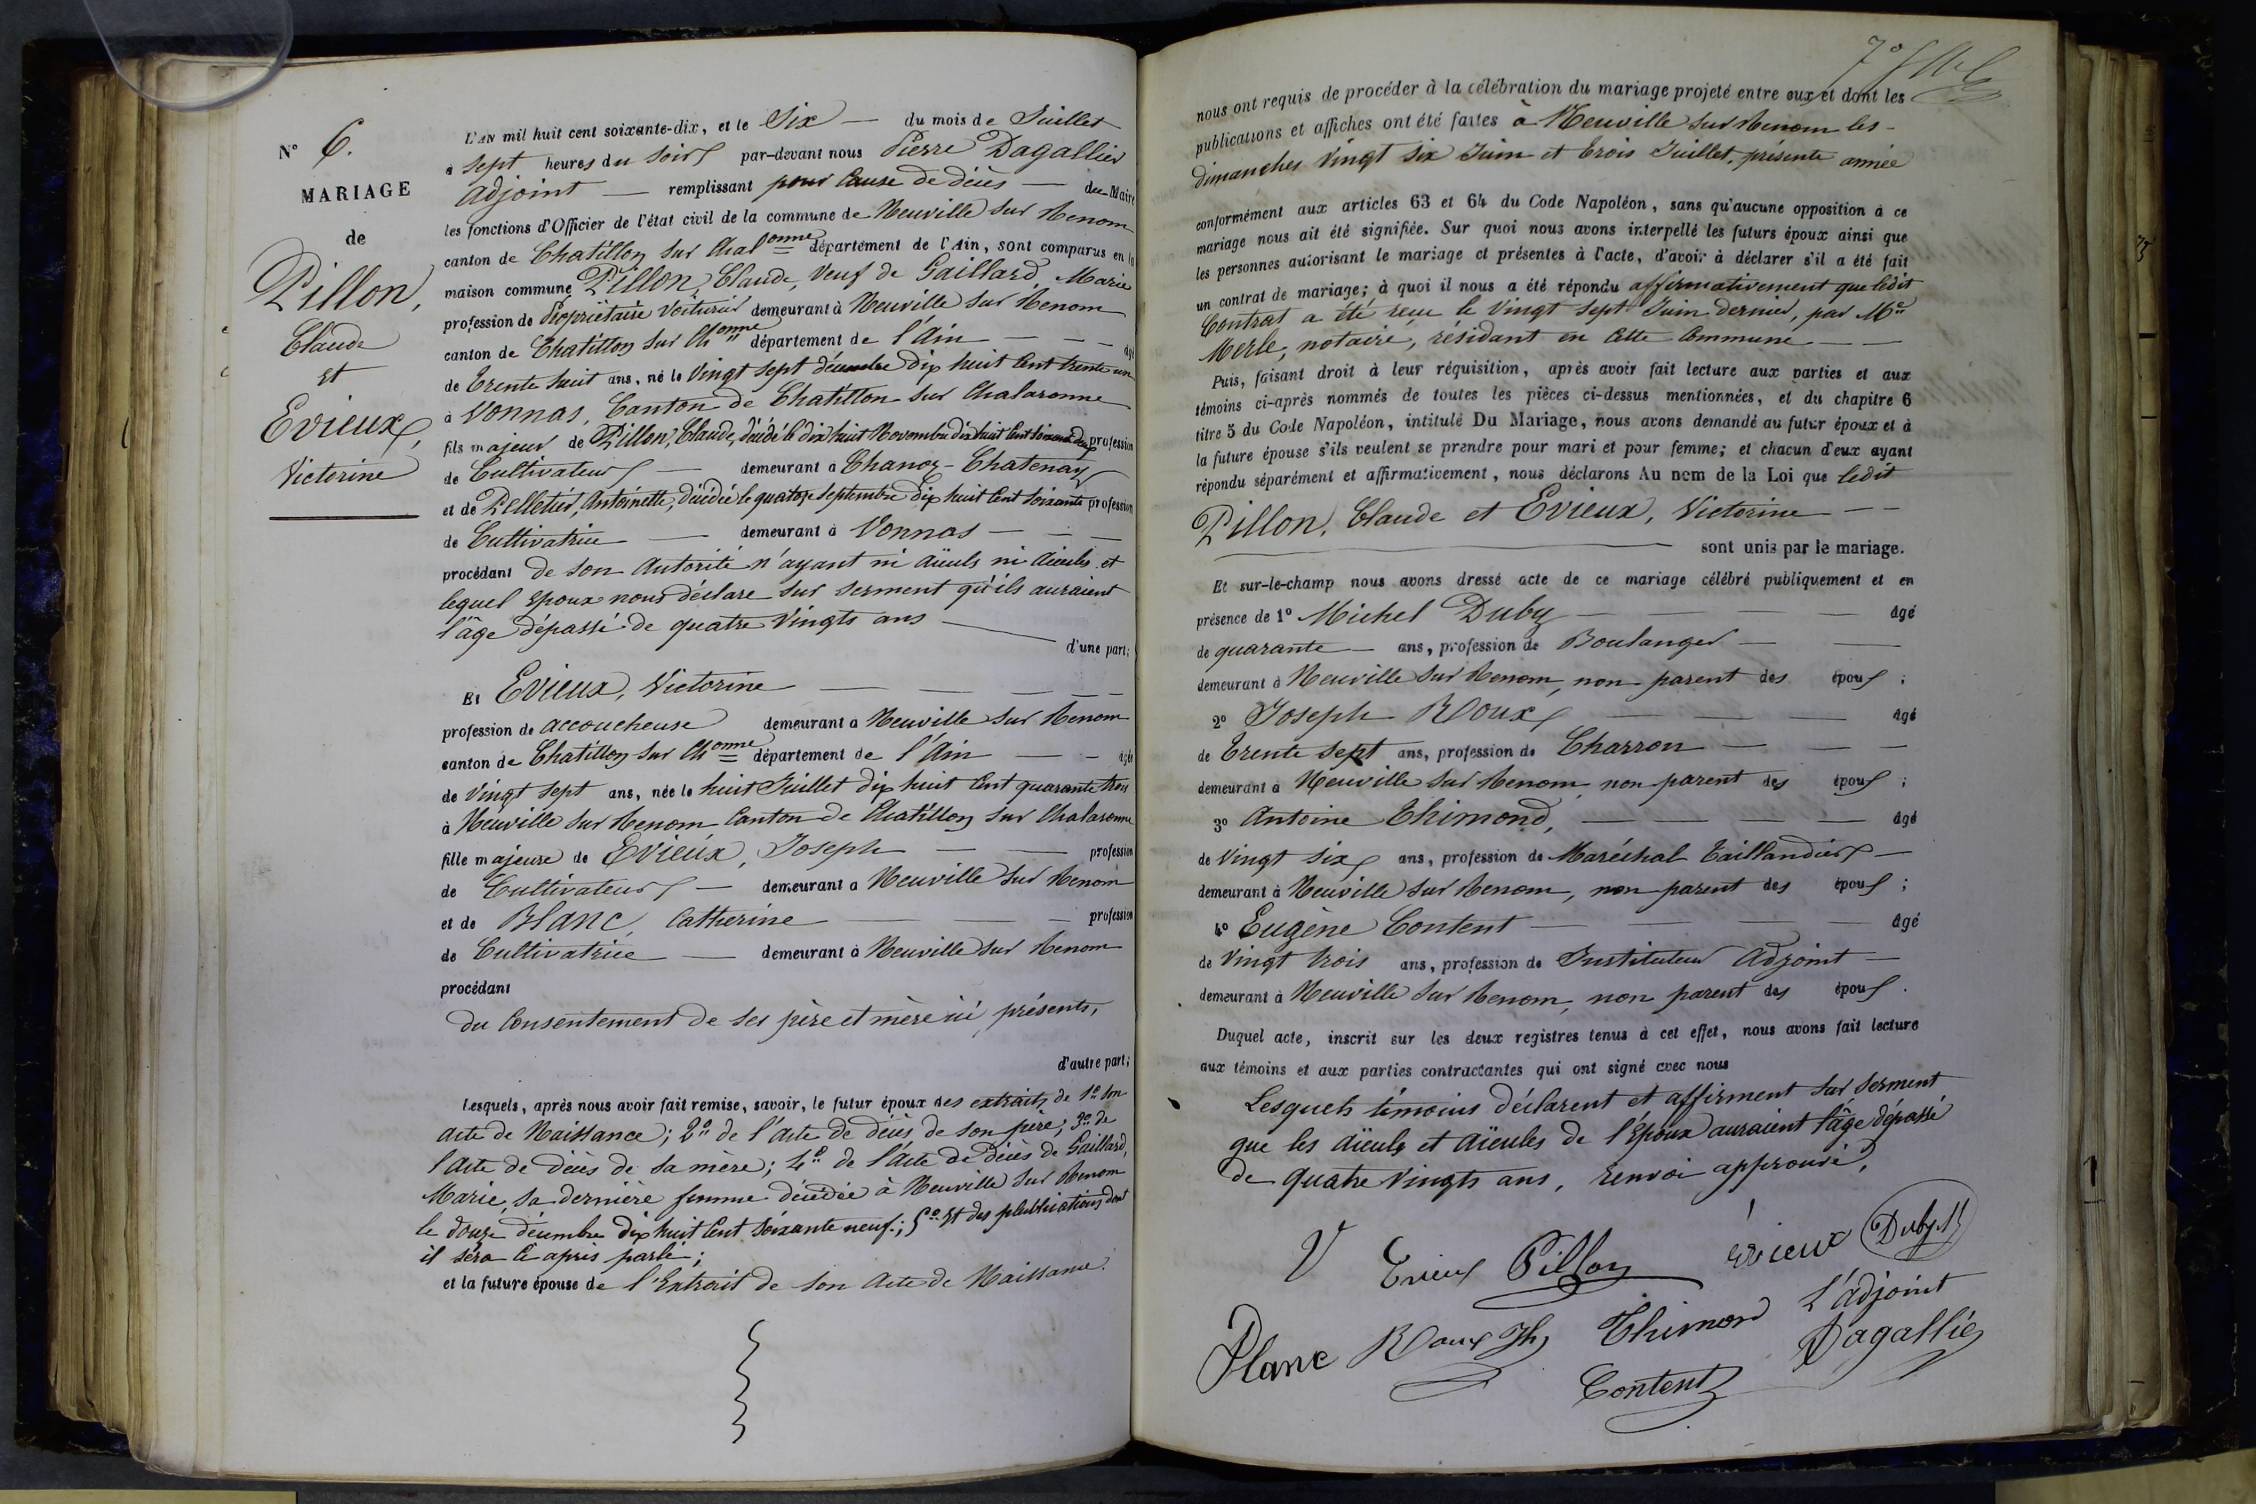 N° 6.
MARIAGE
de
Pillon,
Claude
et
Evieux,
Victorine
L'AN mil huit cent soixante-dix, et le Six — du mois de Juillet
à sept heures du Soir par-devant nous Pierre Dagallier
Adjoint — remplissant pour Cause de décès — du Maire
les fonctions d'Officier de l'état civil de la commune de Neuville sur Renom
canton de Chatillon sur Chalonne département de l'Ain, sont comparus en la
maison commune Pillon, Claude, Veuf de Gaillard, Marie
profession de Propriétaire Voiturier demeurant à Neuville sur Renom
canton de Chatillon sur Chonne département de l'Ain — — — âgé
de Trente huit ans, né le Vingt sept décembre Dix huit Cent trente un
à Vonnas, Canton de Chatillon sur Chalaronne
fils majeur de Pillon, Claude, décédé le dix huit Novembre dix huit Cent soixante deux profession
de Cultivateur — demeurant à Chanoz-Chatenay
et de Pelletier, Antoinette, Décédée le quatorze Septembre Dix huit Cent Soixante profession
de Cultivatrice — demeurant à Vonnas — — —
procédant de son Autorité n'ayant ni Aïeuls ni Aïeules et
lequel Epoux nous déclare sur serment qu'ils auraient
l'âge dépassé de quatre Vingts ans —
d'une part;
Et Evieux, Victorine — — — —
profession de accoucheuse demeurant à Neuville sur Renom
canton de Chatillon sur Chonne département de l'Ain — — âgée
de Vingt sept ans, née le huit Juillet Dix huit Cent quarante trois
à Neuville sur Renom Canton de Chatillon sur Chalaronne
fille majeure de Evieux, Joseph — — profession
de Cultivateur — demeurant à Neuville sur Renom
et de Blanc, Catherine — — — profession
de Cultivatrice — demeurant à Neuville sur Renom
procédant
du Consentement de ses père et mère ici présents,
d'autre part;
Lesquels, après nous avoir fait remise, savoir, le futur époux des extraits de 1° Son
Acte de Naissance; 2° de l'acte de décès de son père; 3° de
l'acte de décès de sa mère; 4° de l'acte de décès de Gaillard,
Marie, sa dernière femme décédée à Neuville sur Renom
le douze décembre dix huit Cent soixante neuf; 5° Et des publications dont
il sera Ci après parlé;
et la future épouse de l'Extrait de son Acte de Naissance.
nous ont requis de procéder à la célébration du mariage projeté entre eux et dont les
publications et affiches ont été faites à Neuville sur Renom les
dimanches Vingt six Juin et trois Juillet, présente année
conformément aux articles 63 et 64 du Code Napoléon, sans qu'aucune opposition à ce
mariage nous ait été signifiée. Sur quoi nous avons interpellé les futurs époux ainsi que
les personnes autorisant le mariage et présentes à l'acte, d'avoir à déclarer s'il a été fait
un contrat de mariage; à quoi il nous a été répondu affirmativement que ledit
Contrat a été reçu le Vingt sept Juin dernier, par Me
Merle, notaire, résidant en Cette Commune — —
Puis, faisant droit à leur réquisition, après avoir fait lecture aux parties et aux
témoins ci-après nommés de toutes les pièces ci-dessus mentionnées, et du chapitre 6
titre 5 du Code Napoléon, intitulé Du Mariage, nous avons demandé au futur époux et à
la future épouse s'ils veulent se prendre pour mari et pour femme; et chacun d'eux ayant
répondu séparément et affirmativement, nous déclarons Au nom de la Loi que ledit
Pillon, Claude et Evieux, Victorine — —
sont unis par le mariage.
Et sur-le-champ nous avons dressé acte de ce mariage célébré publiquement et en
présence de 1° Michel Duby — — — âgé
de quarante — ans, profession de Boulanger — —
demeurant à Neuville sur Renom, non parent des époux ;
2° Joseph Roux — — — âgé
de Trente Sept ans, profession de Charron — — —
demeurant à Neuville sur Renom non parent des époux ;
3° Antoine Thimond, — — — — âgé
de Vingt six ans, profession de Maréchal Taillandier —
demeurant à Neuville sur Renom, non parent des époux ;
4° Eugène Content — — — — âgé
de Vingt trois ans, profession de Instituteur Adjoint —
demeurant à Neuville sur Renom, non parent des époux .
Duquel acte, inscrit sur les deux registres tenus à cet effet, nous avons fait lecture
aux témoins et aux parties contractantes qui ont signé avec nous
Lesquels témoins déclarent et affirment sur serment
que les aïeuls et aïeules de l'Epoux auraient l'âge dépassé
de quatre Vingts ans, renvoi approuvé,
V Evieux Pillon évieux Duby M
Blanc Roux Jh Thimond L'adjoint
Content Dagallier